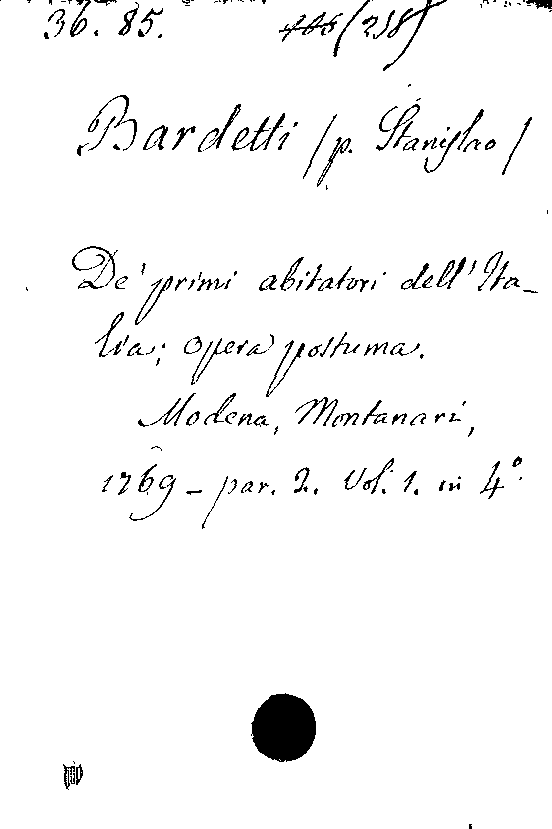 36. 85. (258)
Bardetti (p. Stanislao)
De' primi abitatori dell' Ita-
lia; opera postuma.
Modena, Montanari,
1769 - par. 2. Vol. 1. in 4°.